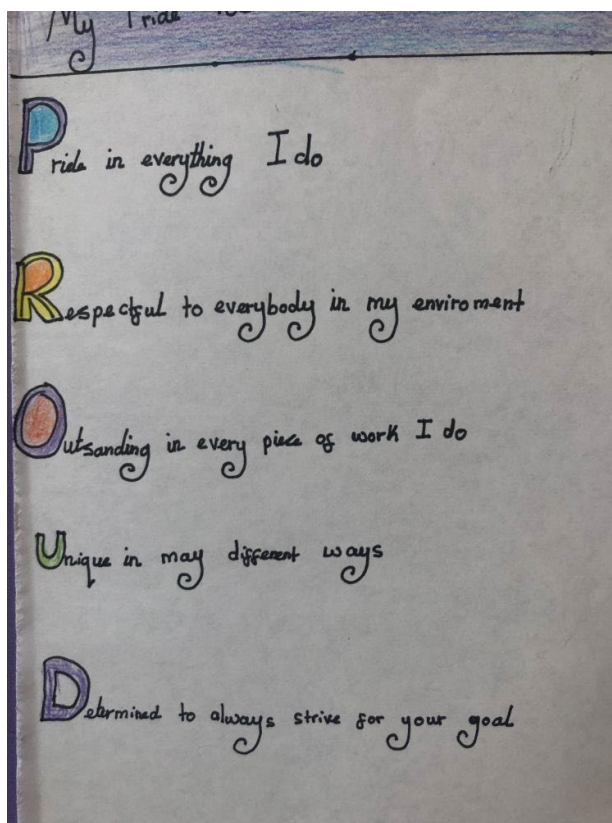 My Pride
Pride in everything I do
Respectful to everybody in my enviroment
Outsanding in every piece of work I do
Unique in may different ways
Determined to always strive for your goal